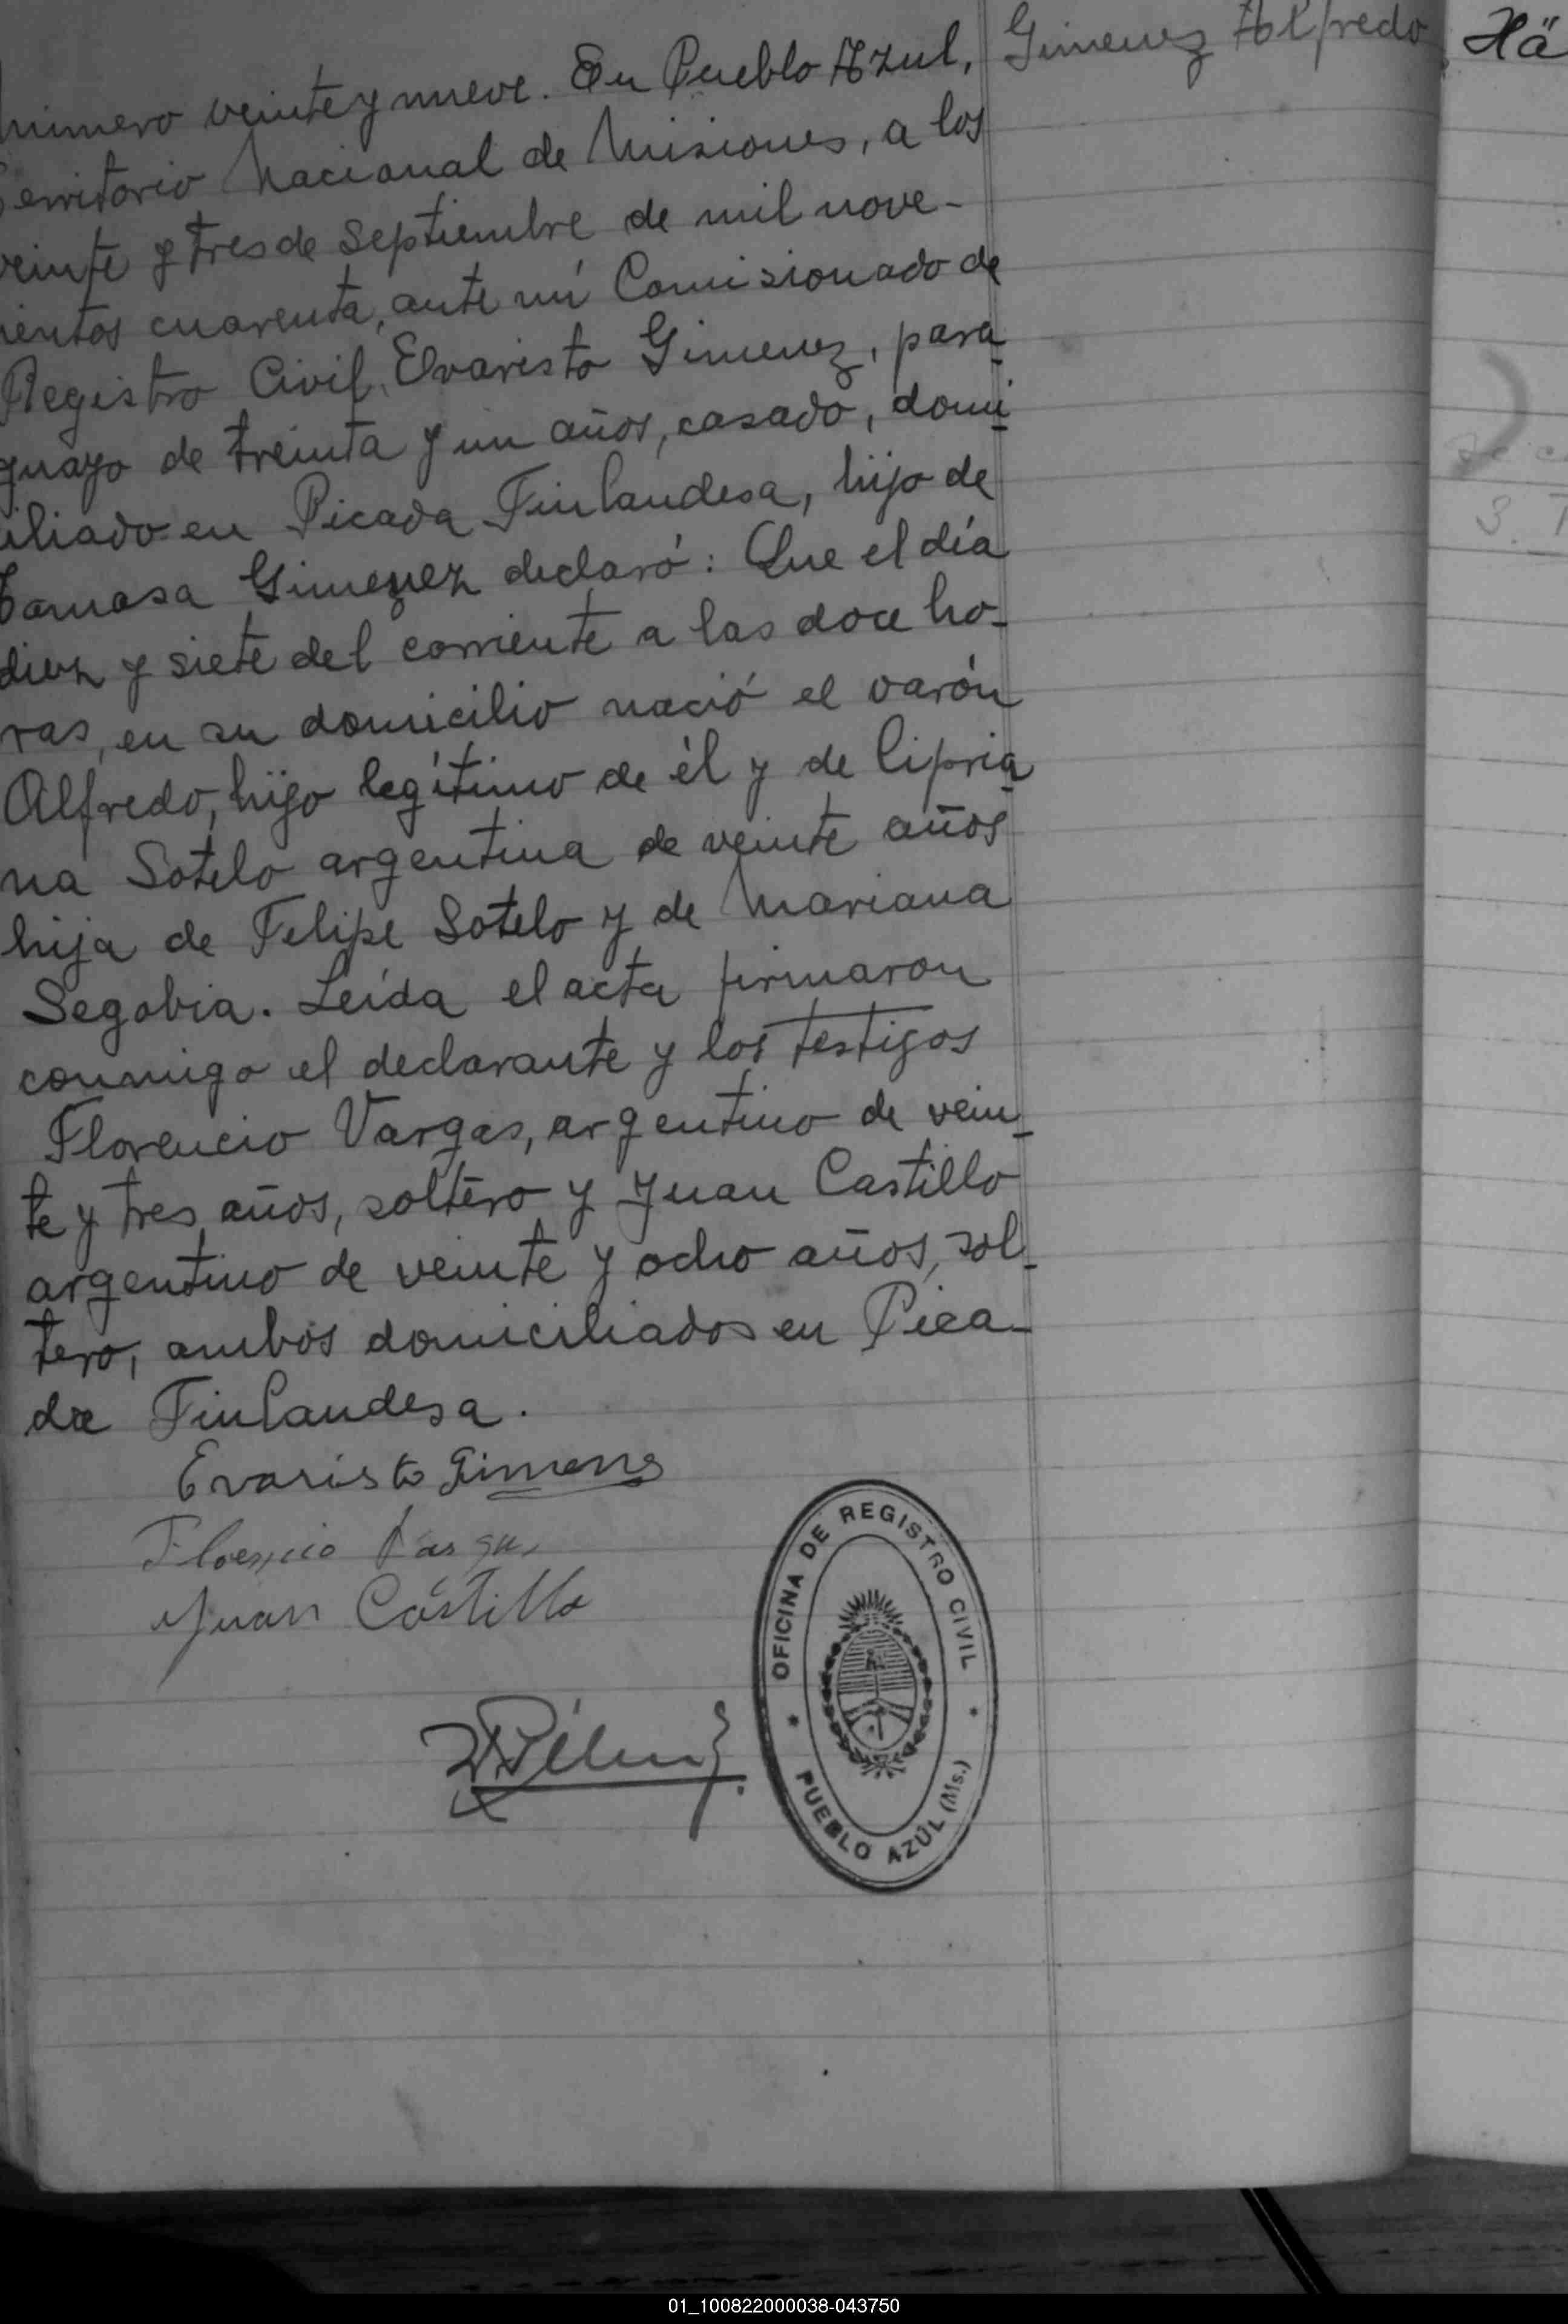 número veinte y nueve. En Pueblo Azul,
Territorio Nacional de Misiones, a los
veinte y tres de Septiembre de mil nove-
cientos cuarenta, ante mí Comisionado de
Registro Civil, Evaristo Gimenez, para
guayo de treinta y un años, casado, domi
ciliado en Picada Finlandesa, hijo de
Tomasa Gimenez declaró: Que el día
diez y siete del corriente a las doce ho-
ras, en su domicilio nació el varón
Alfredo, hijo legítimo de él y de Cipria
na Sotelo argentina de veinte años
hija de Felipe Sotelo y de Mariana
Segobia. Leída el acta firmaron
conmigo el declarante y los testigos
Florencio Vargas, argentino de vein-
te y tres años, soltero y Juan Castillo
argentino de veinte y ocho años, sol-
tero, ambos domiciliados en Pica-
da Finlandesa.
Evaristo Gimenes
Juan Castillo
OFICINA DE REGISTRO CIVIL
* *
PUEBLO AZÚL (Ms.)
Gimenez Alfredo
Hä
01_100822000038-043750